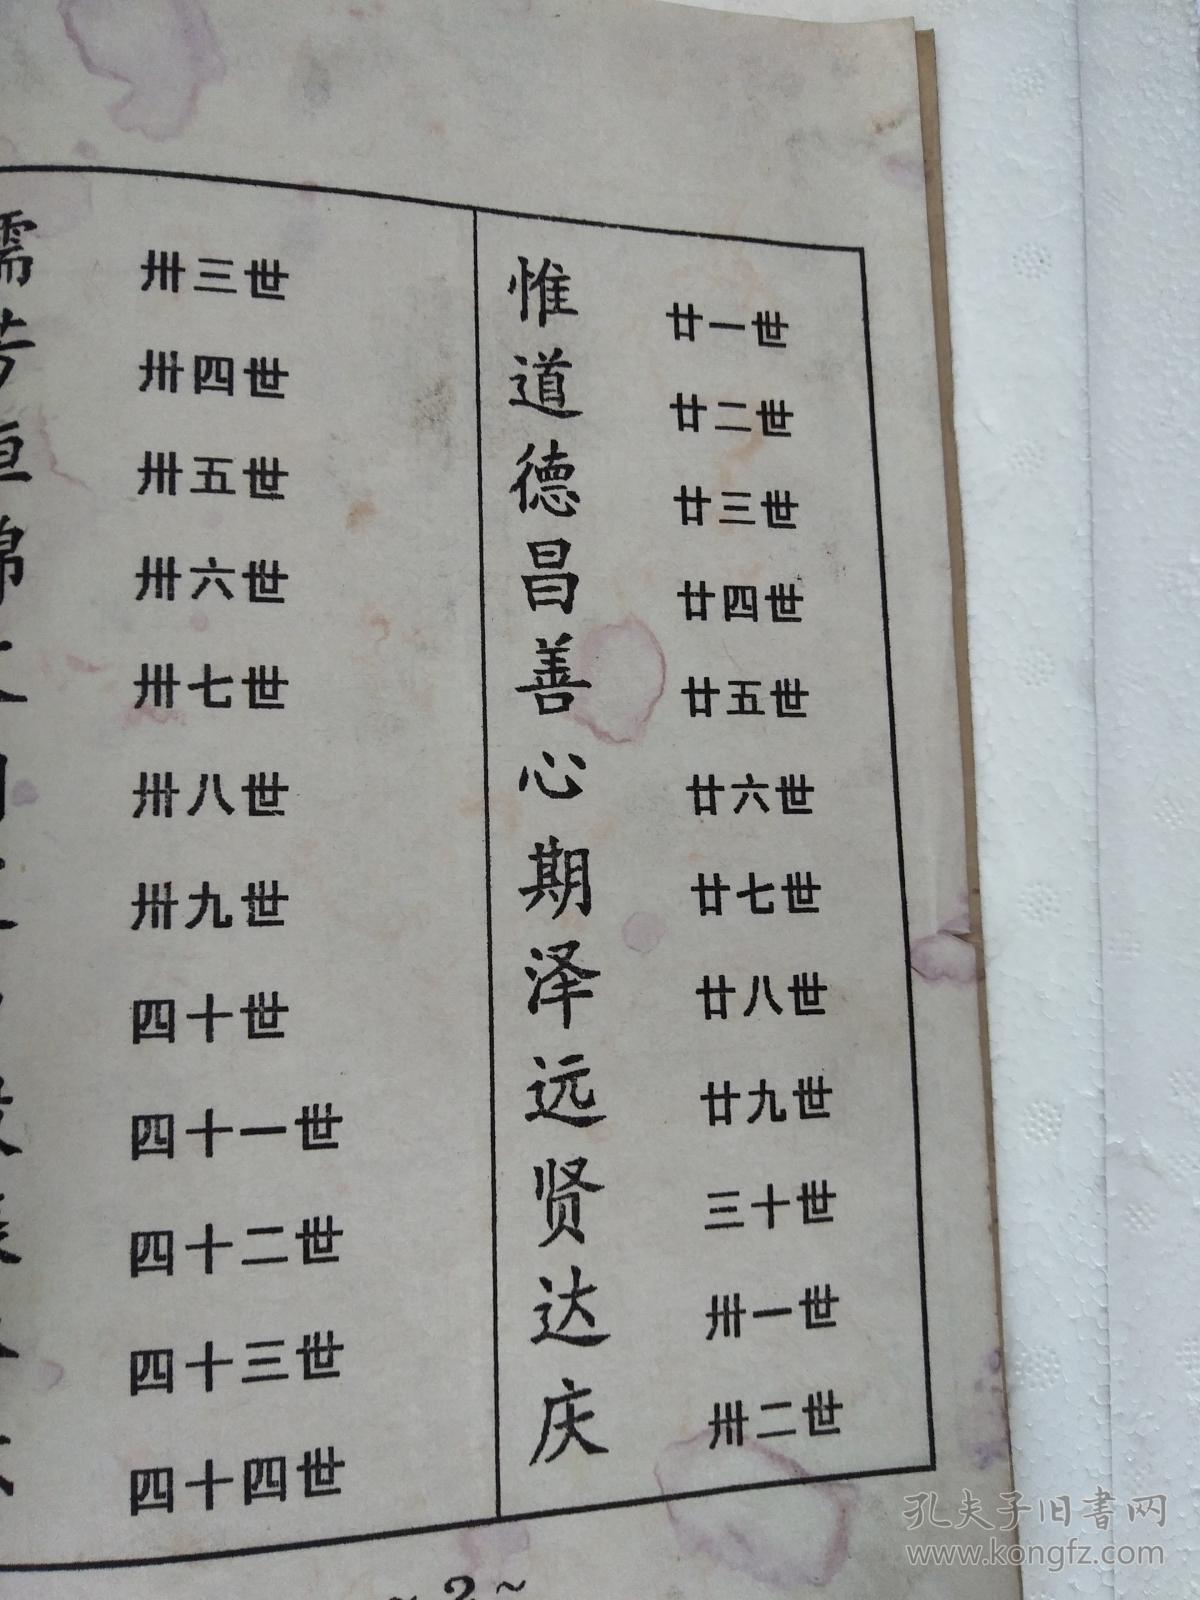 廿一世
廿二世
廿三世
廿四世
廿五世
廿六世
廿七世
廿八世
廿九世
三十世
卅一世
卅二世
惟道德昌善心期泽远贤达庆
卅三世
卅四世
卅五世
卅六世
卅七世
卅八世
卅九世
四十世
四十一世
四十二世
四十三世
四十四世
~2~
孔夫子旧书网
www.kongfz.com